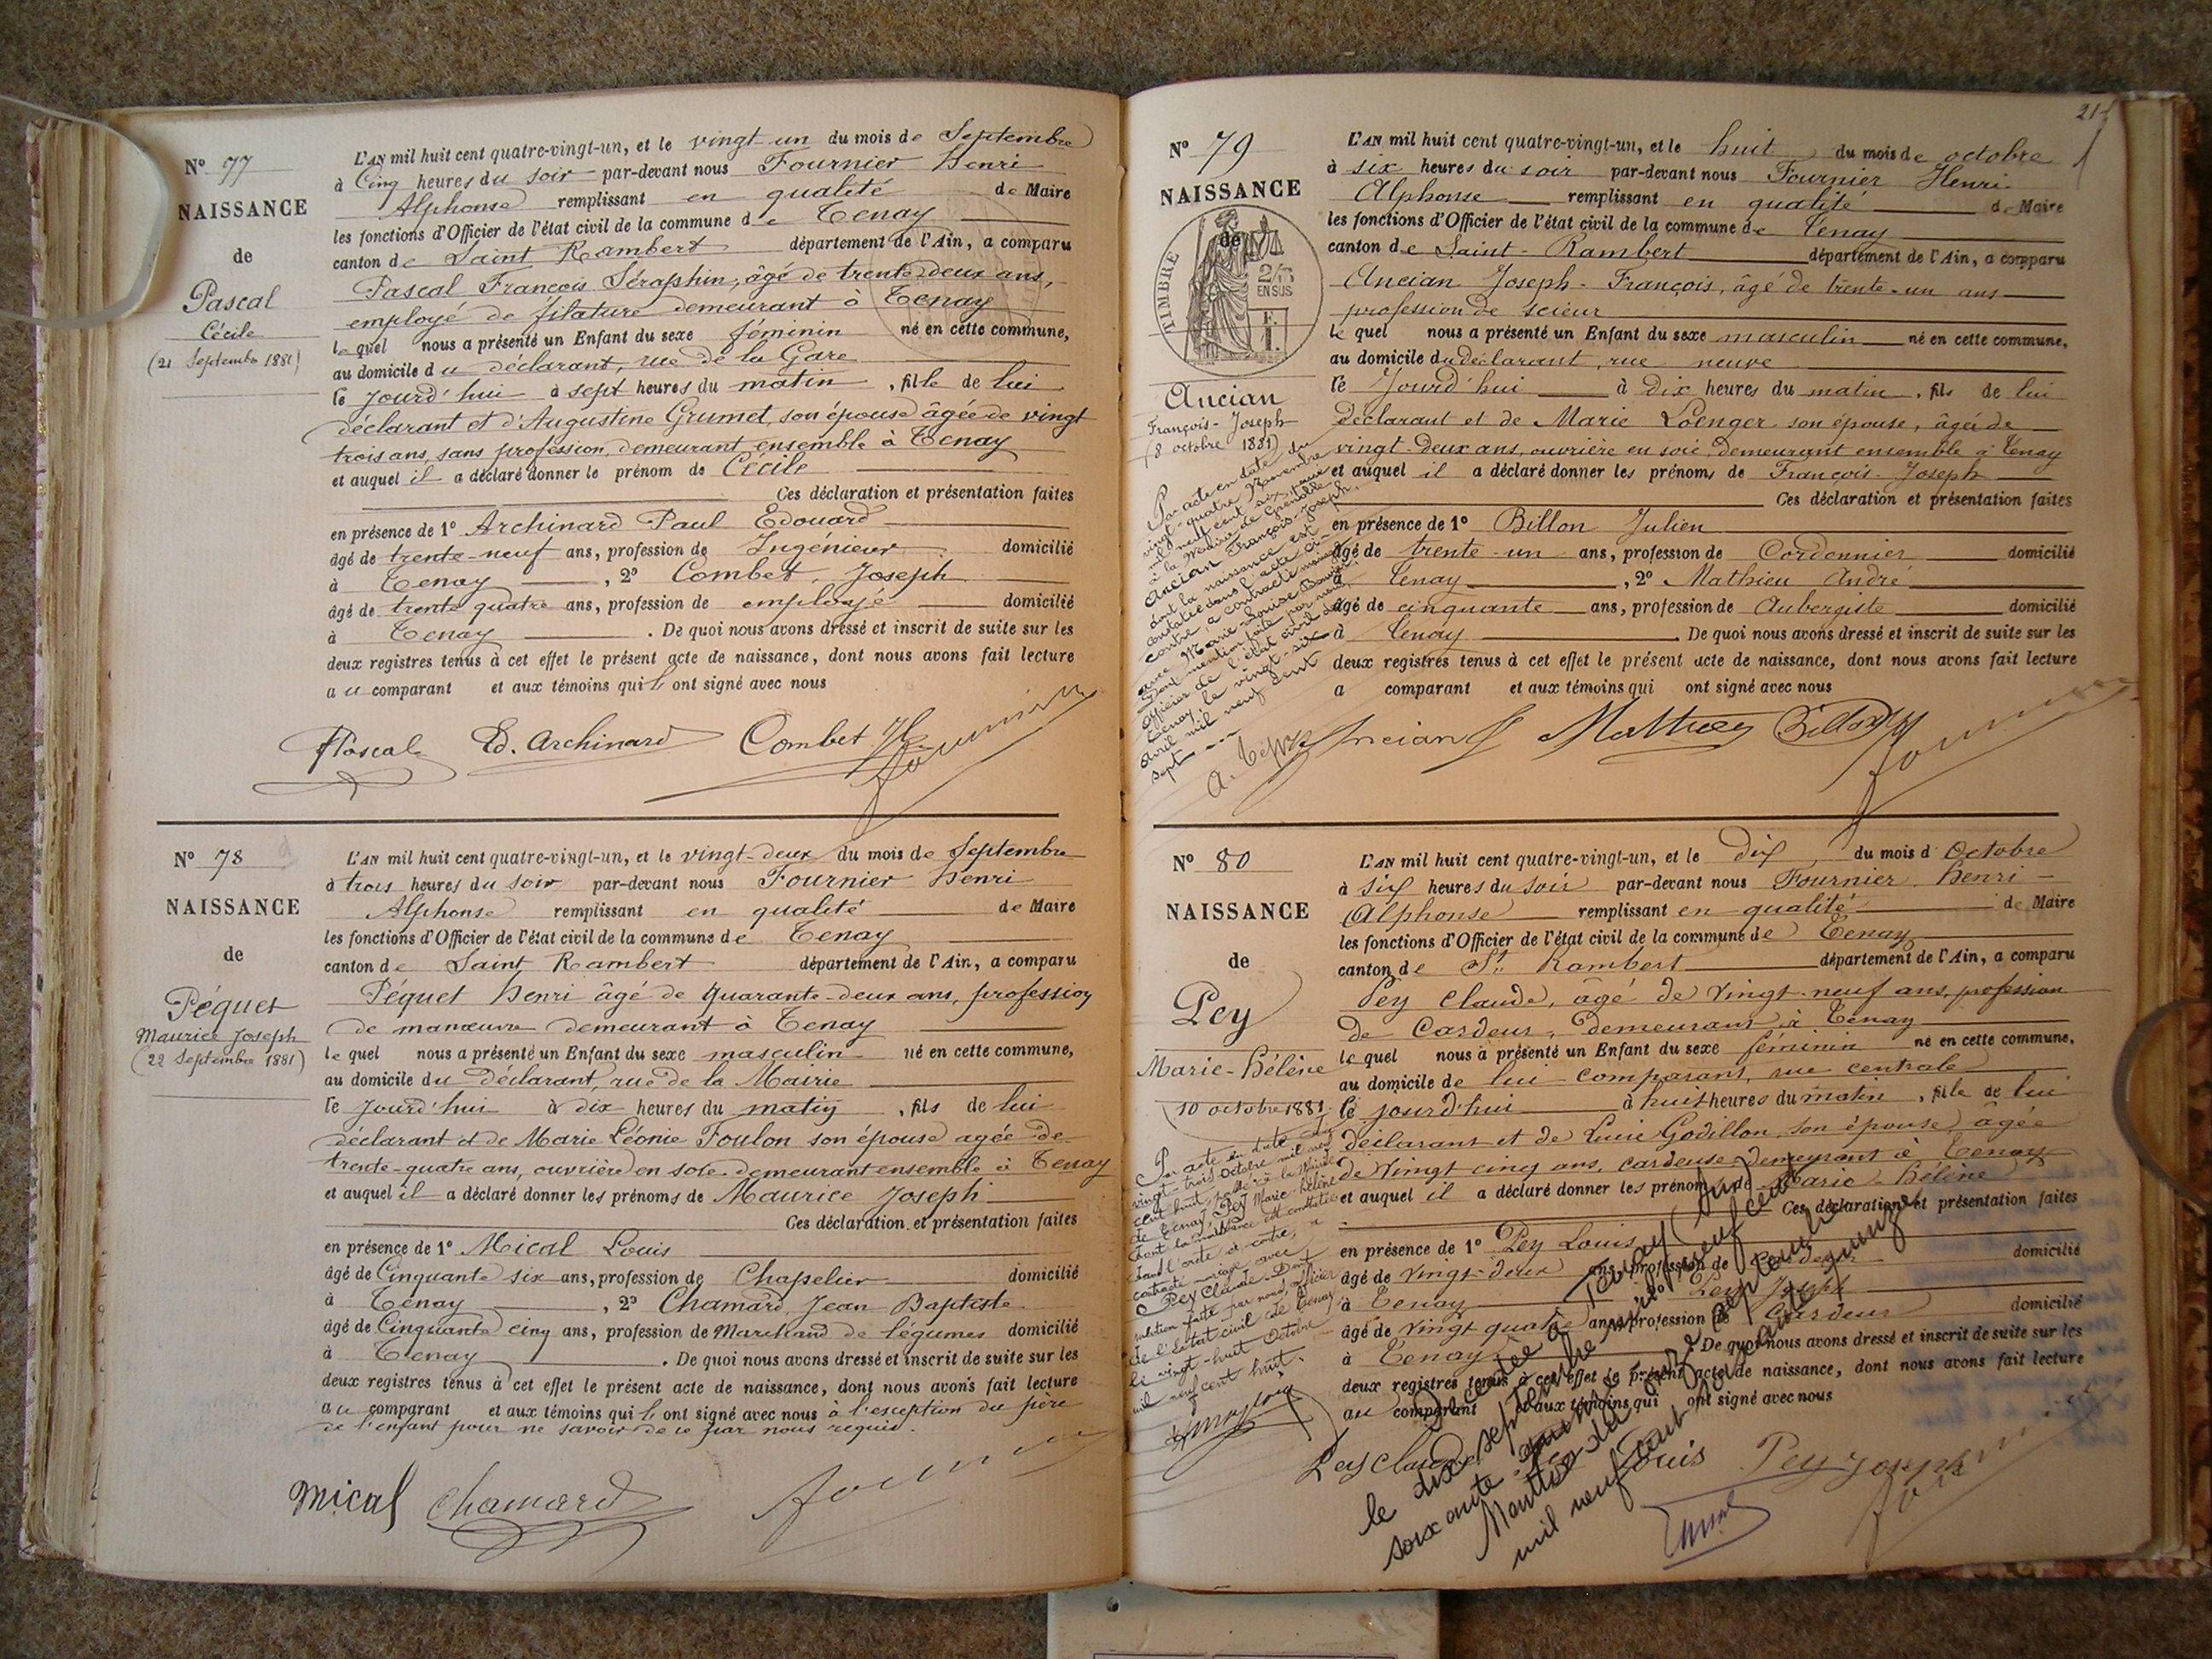 N° 77
NAISSANCE
de
Pascal
Cécile
(21 Septembre 1881)
L'AN mil huit cent quatre-vingt-un, et le vingt-un du mois de Septembre
à Cinq heures du soir par-devant nous Fournier Henri
Alphonse remplissant en qualité de Maire
les fonctions d'Officier de l'état civil de la commune de Tenay
canton de Saint Rambert département de l'Ain, a comparu
Pascal François Séraphin, âgé de trente-deux ans,
employé de filature demeurant à Tenay
lequel nous a présenté un Enfant du sexe féminin né en cette commune,
au domicile du déclarant, rue de la Gare
le jourd'hui à sept heures du matin, fille de lui
déclarant et d'Augustine Grumet, son épouse âgée de vingt
trois ans, sans profession, demeurant ensemble à Tenay
et auquel il a déclaré donner le prénom de Cécile
Ces déclaration et présentation faites
en présence de 1° Archinard Paul Edouard
âgé de trente-neuf ans, profession de Ingénieur domicilié
à Tenay, 2° Combet, Joseph
âgé de trente quatre ans, profession de employé domicilié
à Tenay. De quoi nous avons dressé et inscrit de suite sur les
deux registres tenus à cet effet le présent acte de naissance, dont nous avons fait lecture
au comparant et aux témoins qui ont signé avec nous
Pascal Ed. Archinard Combet Fournier
N° 78
NAISSANCE
de
Péquet
Maurice Joseph
(22 Septembre 1881)
L'AN mil huit cent quatre-vingt-un, et le vingt-deux du mois de Septembre
à trois heures du soir par-devant nous Fournier Henri
Alphonse remplissant en qualité de Maire
les fonctions d'Officier de l'état civil de la commune de Tenay
canton de Saint Rambert département de l'Ain, a comparu
Péquet Henri âgé de quarante-deux ans, profession
de manœuvre demeurant à Tenay
lequel nous a présenté un Enfant du sexe masculin né en cette commune,
au domicile du déclarant, rue de la Mairie
le jourd'hui à dix heures du matin, fils de lui
déclarant et de Marie Léonie Foulon son épouse agée de
trente-quatre ans, ouvrière en soie demeurant ensemble à Tenay
et auquel il a déclaré donner les prénoms de Maurice Joseph
Ces déclaration et présentation faites
en présence de 1° Mical Louis
âgé de Cinquante six ans, profession de Chapelier domicilié
à Tenay, 2° Chamard Jean Baptiste
âgé de Cinquante cinq ans, profession de Marchand de légumes domicilié
à Tenay. De quoi nous avons dressé et inscrit de suite sur les
deux registres tenus à cet effet le présent acte de naissance, dont nous avons fait lecture
au comparant et aux témoins qui ont signé avec nous à l'exception du père
de l'enfant pour ne savoir de ce par nous requis.
Mical Chamard Fournier
N° 79
NAISSANCE
de
TIMBRE
2/10
EN SUS
Ancian
François-Joseph
(8 octobre 1881)
Par acte en date du
vingt-quatre Novembre
mil neuf cent six, passé
à la Mairie de Grenoble
Ancian François-Joseph
dont la naissance est
constatée dans l'acte ci-
contre a contracté mariage
avec Marie-Louise
mention faite par nous
officier de l'état civil de
Tenay, le vingt-six
avril mil neuf cent
sept
L'AN mil huit cent quatre-vingt-un, et le huit du mois de octobre
à six heures du soir par-devant nous Fournier Henri
Alphonse remplissant en qualité de Maire
les fonctions d'Officier de l'état civil de la commune de Tenay
canton de Saint-Rambert département de l'Ain, a comparu
Ancian Joseph-François, âgé de trente-un ans
profession de scieur
lequel nous a présenté un Enfant du sexe masculin né en cette commune,
au domicile du déclarant, rue neuve
le jourd'hui à dix heures du matin, fils de lui
déclarant et de Marie Loenger son épouse, âgée de
vingt-deux ans, ouvrière en soie, demeurant ensemble à Tenay
et auquel il a déclaré donner les prénoms de François-Joseph
Ces déclaration et présentation faites
en présence de 1° Billon Julien
âgé de trente-un ans, profession de Cordonnier domicilié
à Tenay, 2° Mathieu André
âgé de cinquante ans, profession de Aubergiste domicilié
à Tenay. De quoi nous avons dressé et inscrit de suite sur les
deux registres tenus à cet effet le présent acte de naissance, dont nous avons fait lecture
a comparant et aux témoins qui ont signé avec nous
Ancian Mathieu Billon Fournier
N° 80
NAISSANCE
de
Pey
Marie-Hélène
(10 octobre 1881
Par acte en date du
vingt-trois Octobre mil neuf
cent huit, passé à la Mairie
de Tenay, Pey Marie-Hélène
dont la naissance est constatée
dans l'acte ci-contre, a
contracté mariage avec
Pey Claude. Dont
mention faite par nous, officier
de l'état civil de Tenay
le vingt-huit Octobre
mil neuf cent huit.
L'AN mil huit cent quatre-vingt-un, et le dix du mois d'Octobre
à six heures du soir par-devant nous Fournier Henri
Alphonse remplissant en qualité de Maire
les fonctions d'Officier de l'état civil de la commune de Tenay
canton de St. Rambert département de l'Ain, a comparu
Pey Claude, âgé de vingt-neuf ans, profession
de Cardeur, demeurant à Tenay
lequel nous a présenté un Enfant du sexe féminin né en cette commune,
au domicile de lui comparant, rue centrale
le jourd'hui à huit heures du matin, fille de lui
déclarant et de Lucie Godillon, son épouse, âgée
de vingt cinq ans, cardeuse demeurant à Tenay
et auquel il a déclaré donner les prénoms de Marie-Hélène
Ces déclaration et présentation faites
en présence de 1° Pey Louis
âgé de vingt-deux ans, profession de Cardeur domicilié
à Tenay Pey Joseph
âgé de vingt quatre ans, profession de Cardeur domicilié
à Tenay. De quoi nous avons dressé et inscrit de suite sur les
deux registres tenus à cet effet le présent acte de naissance, dont nous avons fait lecture
au comparant et aux témoins qui ont signé avec nous
Pey Claude Louis Pey Joseph Fournier
Décédée à Tenay (Ain)
le dix septembre mil neuf cent
soixante
Mention du onze septembre
mil neuf cent soixante quinze